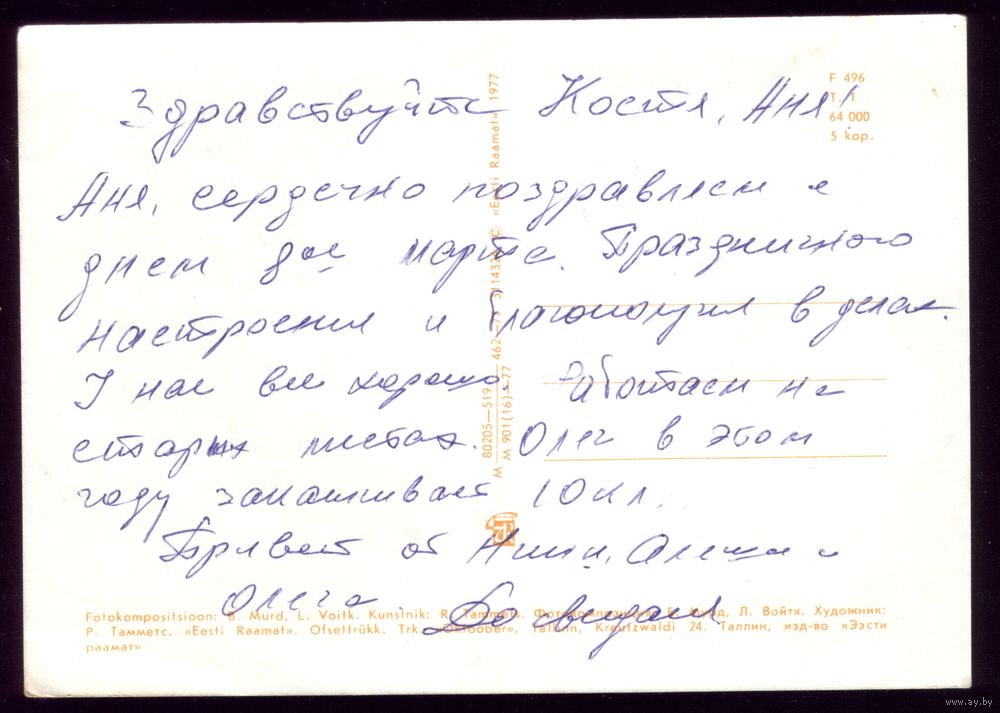 Здравствуйте Костя, Аня!
Аня, сердечно поздравляем с
днем 8ого марта. Праздничного
настроения и благополучия в делах.
У нас все хорошо. Работаем на
старых местах. Олег в этом
году заканчивает 10 кл.
Привет от Нины, Алеши и
Олега. До свидания
F 496
T. 1
64 000
5 kop.
«Eesti Raamat» 1977
M 80205—519
M 901(16)—77
Fotokompositsioon: B. Murd, L. Voitk. Kunstnik: R. Tammets. Мурд, Л. Войтк. Художник:
Р. Тамметс. «Eesti Raamat». Ofsettrükk. Trk. «Oktoober», Tallinn, Kreutzwaldi 24. Таллин, изд-во «Ээсти
раамат»
www.ay.by